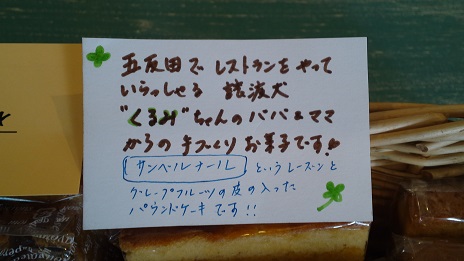 五反田で レストランをやって
いらっしゃる 譲渡犬
"くるみ"ちゃんの パパ&ママ
からの 手づくり お菓子です
サンベルナール という レーズンと
グレープフルーツの皮の入った
パウンドケーキです!!